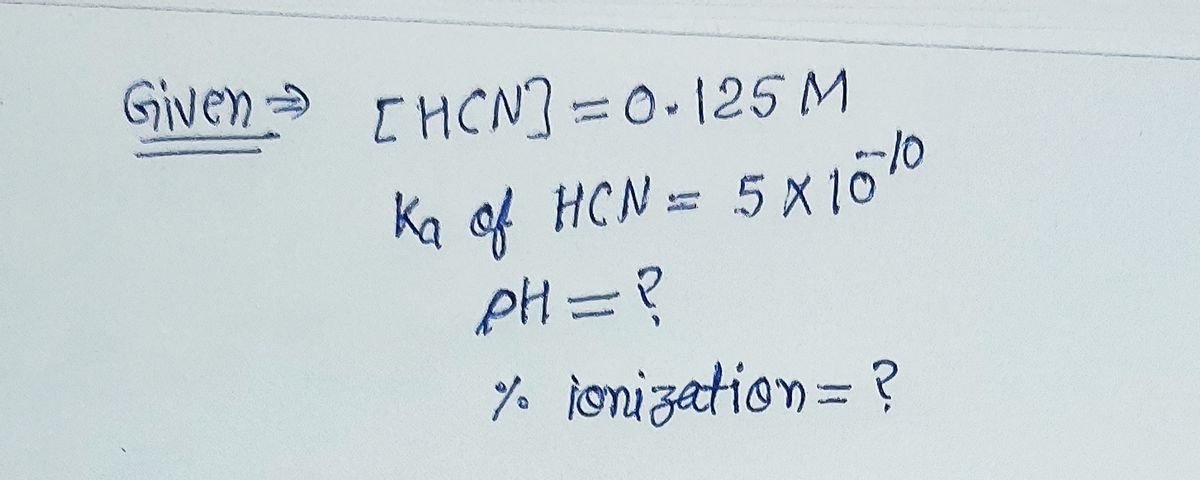 Given ⇒ [HCN] = 0.125 M
Ka of HCN = 5 × 10⁻¹⁰
pH = ?
% ionization = ?